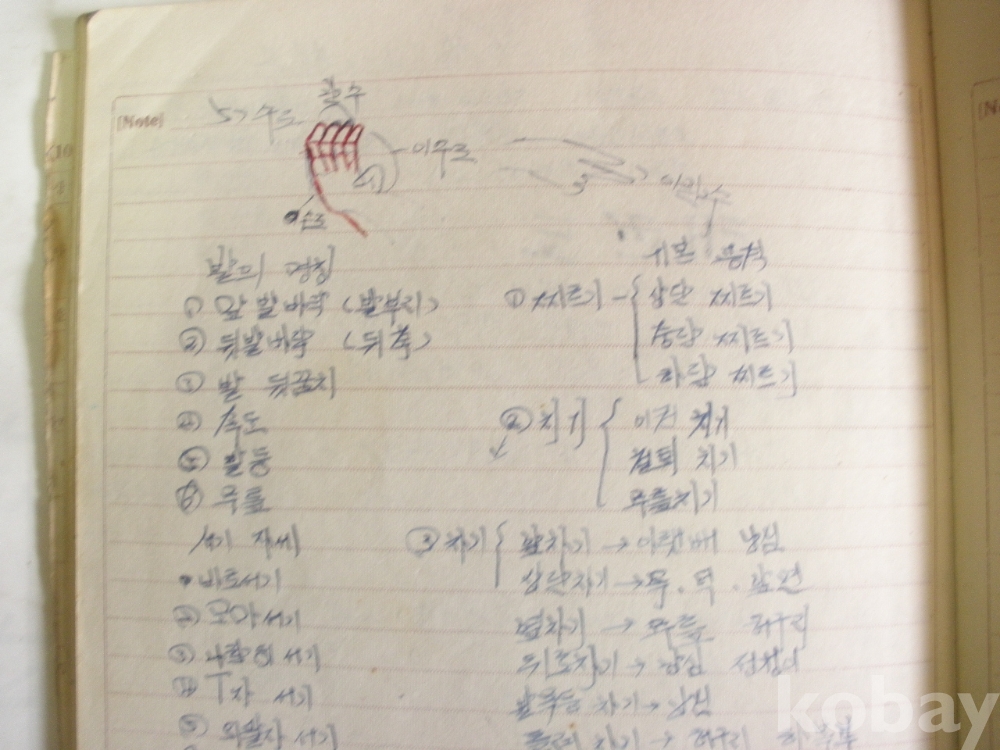 [Note]
수도
이수도
수도
발의 명칭
① 앞 발바닥 (발부리)
② 뒤발바닥 (뒤축)
① 발 뒷꿈치
④ 족도
⑤ 발등
⑥ 무릎
서기 자세
• 바로서기
② 모아서기
③ 나란히 서기
④ T자 서기
⑤ 외발자 서기
기본 공격
① 찌르기 - 상단 찌르기
중단 찌르기
하단 찌르기
② 치기 치기
치기
무릎치기
③ 차기 앞차기 → 아랫배 낭심
상단차기 → 목 · 턱 · 안면
옆차기 → 허구리
뒤로차기 → 낭심
발등 차기 → 낭심
차기 →
kobay